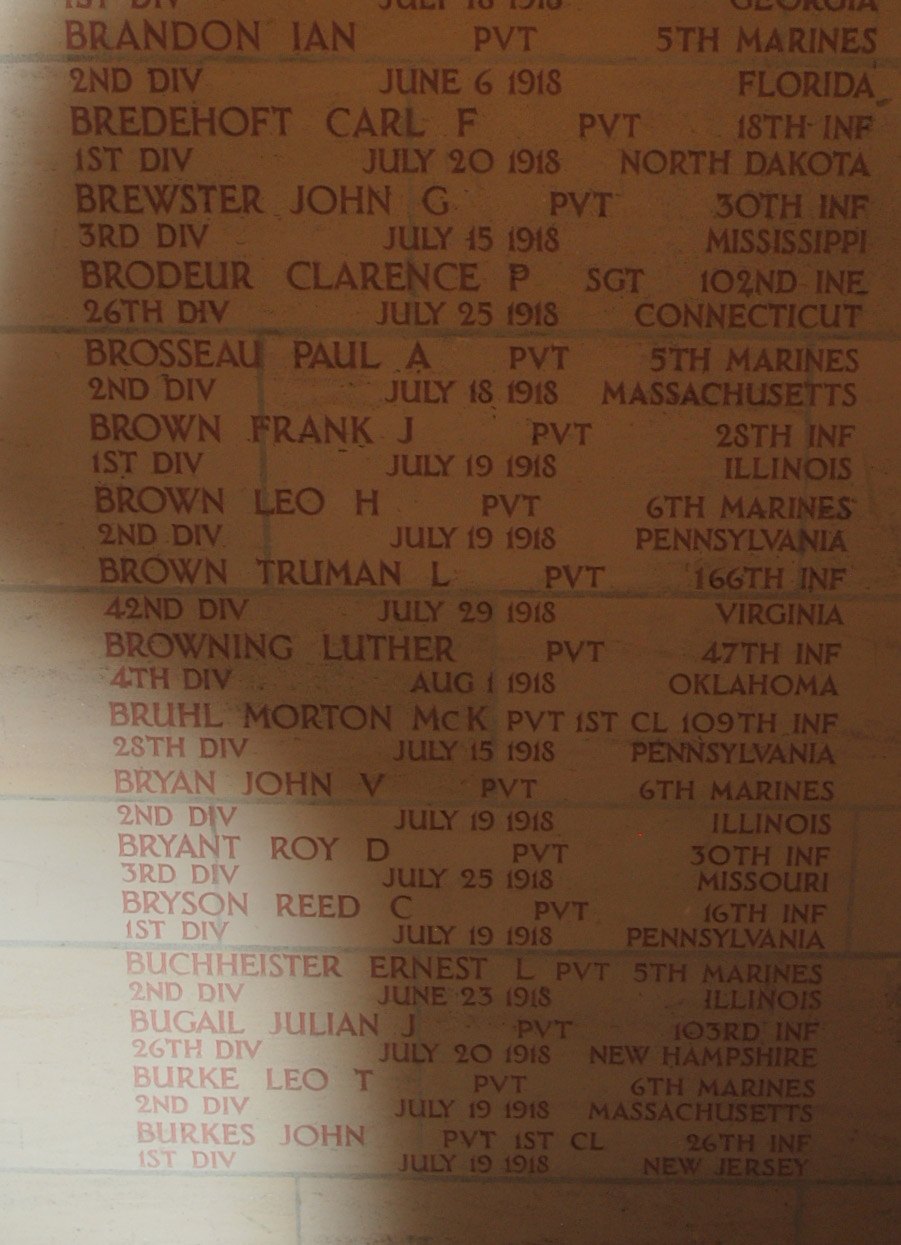 1ST DIV JULY 18 1918 GEORGIA
BRANDON IAN PVT 5TH MARINES
2ND DIV JUNE 6 1918 FLORIDA
BREDEHOFT CARL F PVT 18TH INF
1ST DIV JULY 20 1918 NORTH DAKOTA
BREWSTER JOHN G PVT 30TH INF
3RD DIV JULY 15 1918 MISSISSIPPI
BRODEUR CLARENCE P SGT 102ND INF
26TH DIV JULY 25 1918 CONNECTICUT
BROSSEAU PAUL A PVT 5TH MARINES
2ND DIV JULY 18 1918 MASSACHUSETTS
BROWN FRANK J PVT 28TH INF
1ST DIV JULY 19 1918 ILLINOIS
BROWN LEO H PVT 6TH MARINES
2ND DIV JULY 19 1918 PENNSYLVANIA
BROWN TRUMAN L PVT 166TH INF
42ND DIV JULY 29 1918 VIRGINIA
BROWNING LUTHER PVT 47TH INF
4TH DIV AUG 1 1918 OKLAHOMA
BRUHL MORTON McK PVT 1ST CL 109TH INF
28TH DIV JULY 15 1918 PENNSYLVANIA
BRYAN JOHN V PVT 6TH MARINES
2ND DIV JULY 19 1918 ILLINOIS
BRYANT ROY D PVT 30TH INF
3RD DIV JULY 25 1918 MISSOURI
BRYSON REED C PVT 16TH INF
1ST DIV JULY 19 1918 PENNSYLVANIA
BUCHHEISTER ERNEST L PVT 5TH MARINES
2ND DIV JUNE 23 1918 ILLINOIS
BUGAIL JULIAN J PVT 103RD INF
26TH DIV JULY 20 1918 NEW HAMPSHIRE
BURKE LEO T PVT 6TH MARINES
2ND DIV JULY 19 1918 MASSACHUSETTS
BURKES JOHN PVT 1ST CL 26TH INF
1ST DIV JULY 19 1918 NEW JERSEY